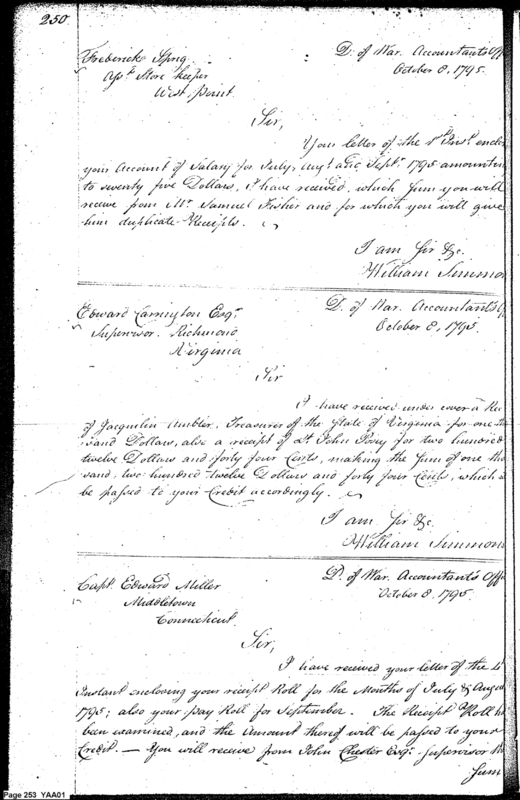 250
Frederick Spng
Ass't Store keeper
West point
D. of War. Accountant's Off
October 8, 1795.
Sir,
Your letter of the 1st Inst. enclos
your Account of Salary for July, Augt. and Septr. 1795 amountin
to seventy five Dollars, I have received, which sum you will
receive from Mr. Samuel Fisher and for which you will give
him duplicate Receipts.
I am Sir &c.
William Simmon
Edward Carrington Esqr.
Supervisor. Richmond
Virginia
D. of War. Accountant's O
October 8, 1795.
Sir
I have received under cover a Rec
of Jacquelin Ambler, Treasurer of the State of Virginia for one tho
sand Dollars, also a receipt of Lt John for two hundred
twelve Dollars and forty four Cents, making the sum of one tho
sand, two hundred twelve Dollars and forty four Cents, which w
be passed to your Credit accordingly.
I am Sir &c.
William Simmons
Capt. Edward Miller
Middletown
Connecticut
D. of War. Accountant's Offi
October 8. 1795
Sir,
I have received your letter of the
Instant enclosing your receipt Roll for the Months of July & August
1795; also your pay Roll for September. The Receipt Roll h
been examined, and the amount thereof will be passed to your
Credit. — You will receive from John Chester Esqr. Supervisor th
Sum
Page 253 YAA01